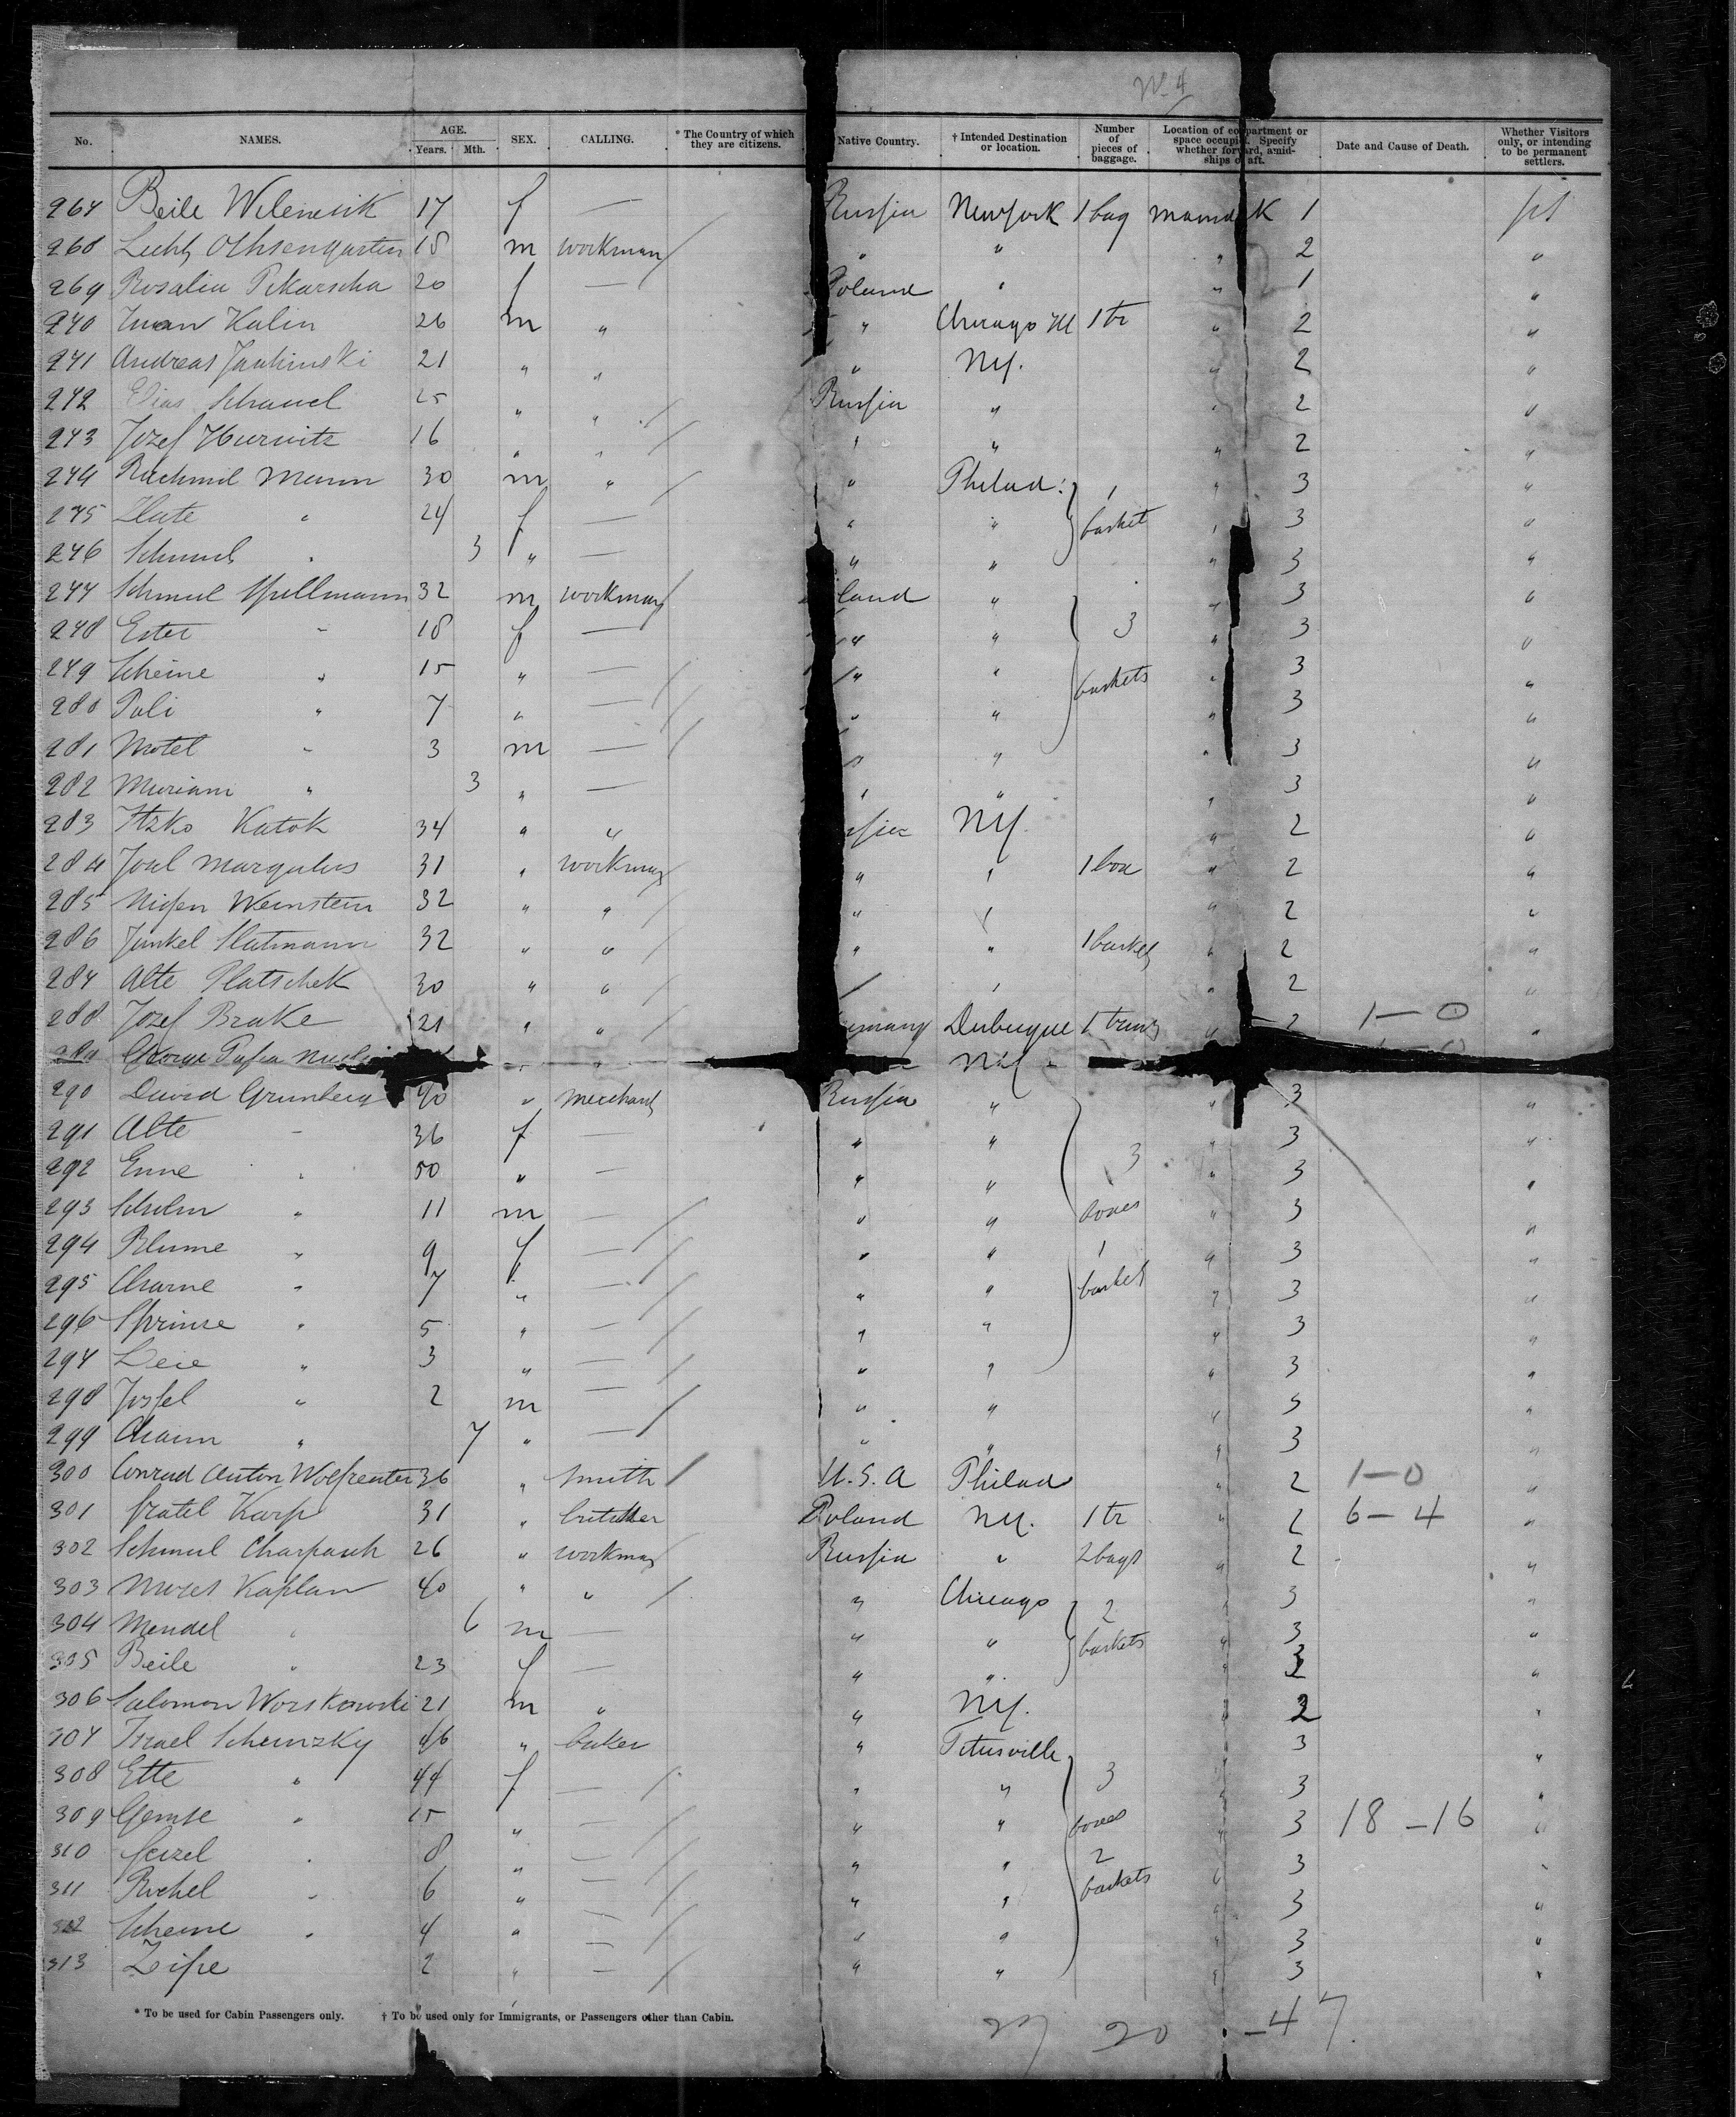 No. NAMES. AGE. Years. Mth. SEX. CALLING. * The Country of which they are citizens. Native Country. † Intended Destination or location. Number of pieces of baggage. Location of compartment or space occupied. Specify whether forward, amidships or aft. Date and Cause of Death. Whether Visitors only, or intending to be permanent settlers.
No 4
267 Beile 17 f — Russia Newyork 1 bag 1
268 18 m workman " " " 2 "
269 Rosalia Pikarscha 20 f — Poland " " 1 "
270 Iwan Kalin 26 m " " Chicago Ill 1 tr " 2 "
271 Andreas 21 " " " NY. " 2 "
272 Elias Schauel 25 " " Russia " " 2 "
273 Jozef Hurwitz 16 " " " " " 2 "
274 Rachmil Mann 30 m " " Philad: 1 " 3 "
275 Slate " 24 f — " " basket " 3 "
276 Schmul " 3 " — " " " 3 "
277 Schmul Spillmann 32 m workman land " " 3 "
278 Ester " 18 f — " " 3 " 3 "
279 Scheine " 15 " — " " baskets " 3 "
280 Poli " 7 " — " " " 3 "
281 Motel " 3 m — " " " 3 "
282 Muriam " 3 " — " " " 3 "
283 Itzko Katok 34 " " NY. " 2 "
284 Joal Margulies 31 " workman " " 1 box " 2 "
285 Nissen Weinstein 32 " " " " " 2 "
286 Jankel Slatmann 32 " " " " 1 basket " 2 "
287 Alte Platschek 30 " " " " 2 "
288 Jozef Brake 21 " " many Dubuque 1 trunk " 2 1—0 "
289 George " " NY
290 David Grunberg 40 " merchant Russia " " 3 "
291 Alte " 36 f — " " " 3 "
292 Enne " 50 " — " " 3 " 3 "
293 " 11 m — " " boxes " 3 "
294 Blume " 9 f — " " 1 " 3 "
295 Charne " 7 " — " " basket " 3 "
296 Sprinse " 5 " — " " " 3 "
297 Leie " 3 " — " " " 3 "
298 Jossel " 2 m — " " " "
299 Chaim " 7 " — " " " 3 "
300 Conrad Anton 36 " smith U.S.A Philad " 2 1—0 "
301 Karp 31 " butcher Poland NY. 1 tr " 2 6—4 "
302 Schmul 26 " workman Russia " 2 bags " 2 "
303 Moses Kaplan 40 " " " Chicago 2 " 3 "
304 Mendel " 6 m — " " baskets " 3 "
305 Beile " 23 f — " " " "
306 Salomon Worskowski 21 m " " NY. " 2 "
307 Israel Scheinzky 46 " baker " Titusville " 3 "
308 Ette " 44 f — " " 3 " 3 "
309 " 15 " — " " boxes " 3 18—16 "
310 " 8 " — " " 2 " 3 "
311 Rochel " 6 " — " " baskets " 3 "
312 Scheine " 4 " — " " " 3 "
313 Zipe 2 " — " " " 3 "
* To be used for Cabin Passengers only. † To be used only for Immigrants, or Passengers other than Cabin.
20 —47.